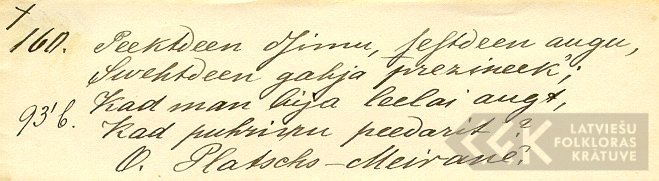 +
160. Peektdeen dsimu, sestdeen augu,
Swehtdeen gahja prezineek';
93'b. Kad man bija leelai augt,
Kad puhriņu peedarit?
O. Platschs – Meiranē.
LATVIEŠU
FOLKLORAS
KRĀTUVE